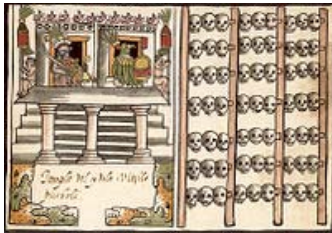 Templo del ydolo Vitzili
puchtli.